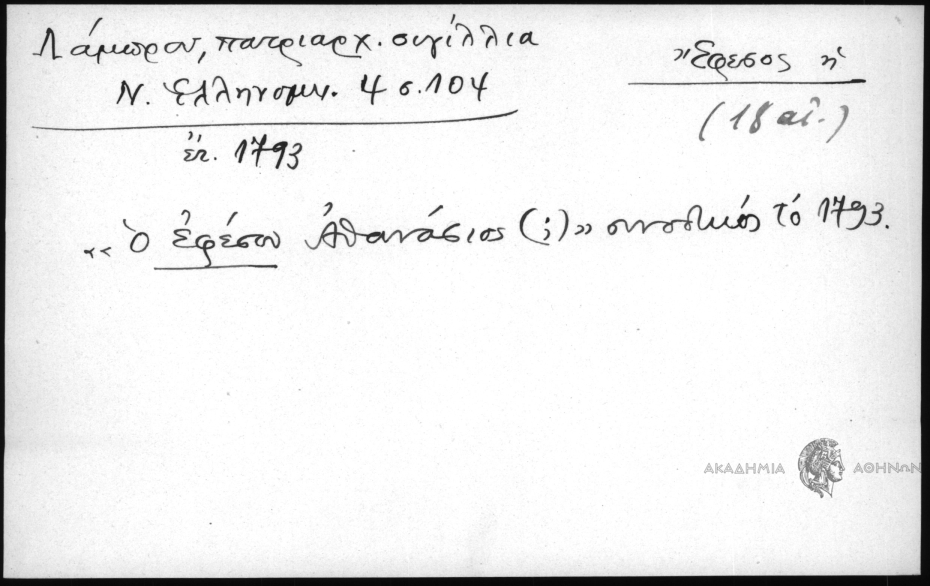 Λάμπρου, πατριαρχ. σιγίλλια
Ν. Ἑλληνομν. 4 σ. 104
ἔτ. 1793
Ἔφεσος ἡ
(18 αἰ.)
«Ὁ Ἐφέσου Ἀθανάσιος (;)» συνοδικός τό 1793.
ΑΚΑΔΗΜΙΑ ΑΘΗΝΩΝ